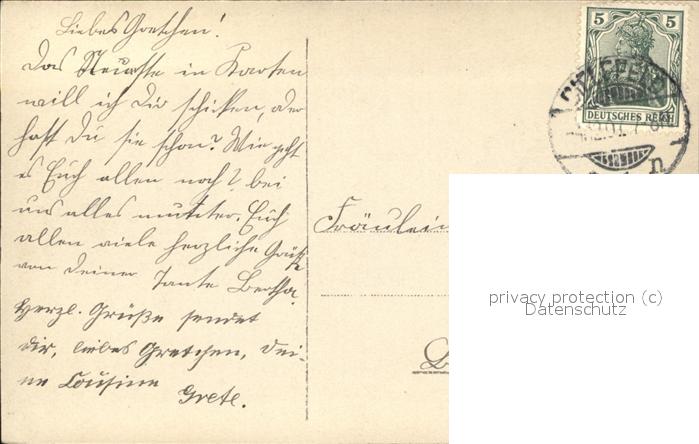 Liebes Gretchen!
Das Neueste in Karten
will ich Dir schicken, oder
hast Du sie schon? Wie geht
es Euch allen noch? bei
uns alles munter. Euch
allen viele herzliche Grüße
von Deiner Tante Bertha.
Herzl. Grüße sendet
Dir, liebes Gretchen, Dei-
ne Cousine
Grete.
5 5
DEUTSCHES REICH
n
Fräulein
privacy protection (c)
Datenschutz